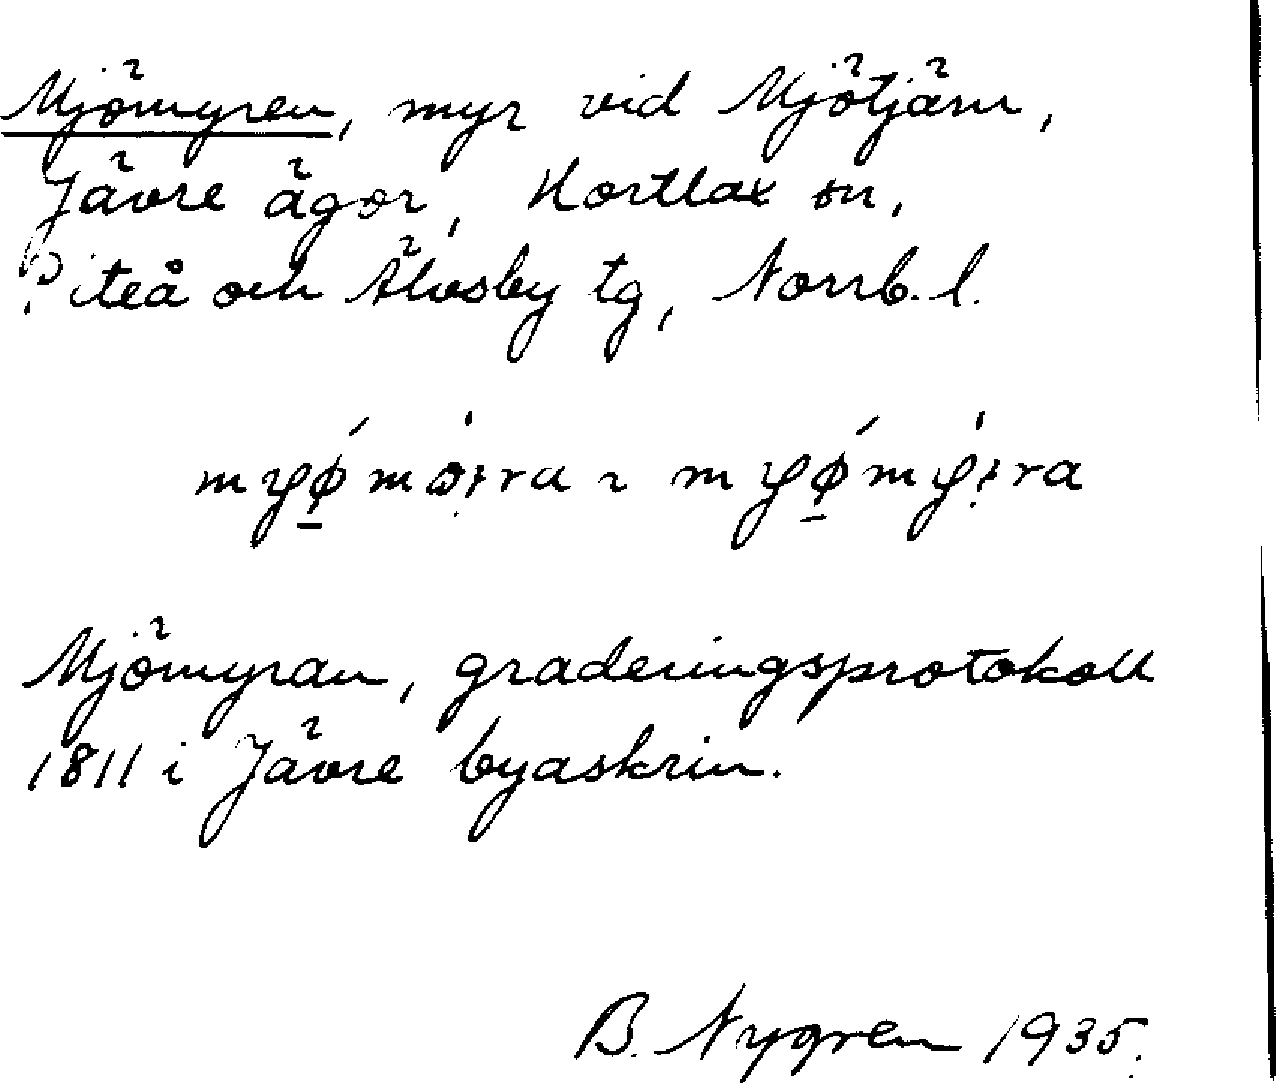 Mjömyren, myr vid Mjötjärn,
Jävre ägor, Hortlax sn,
Piteå och Älvsby tg, Norrb. l.
Mjömyran, graderingsprotokoll
1811 i Jävre byaskrin.
B. Nygren 1935.